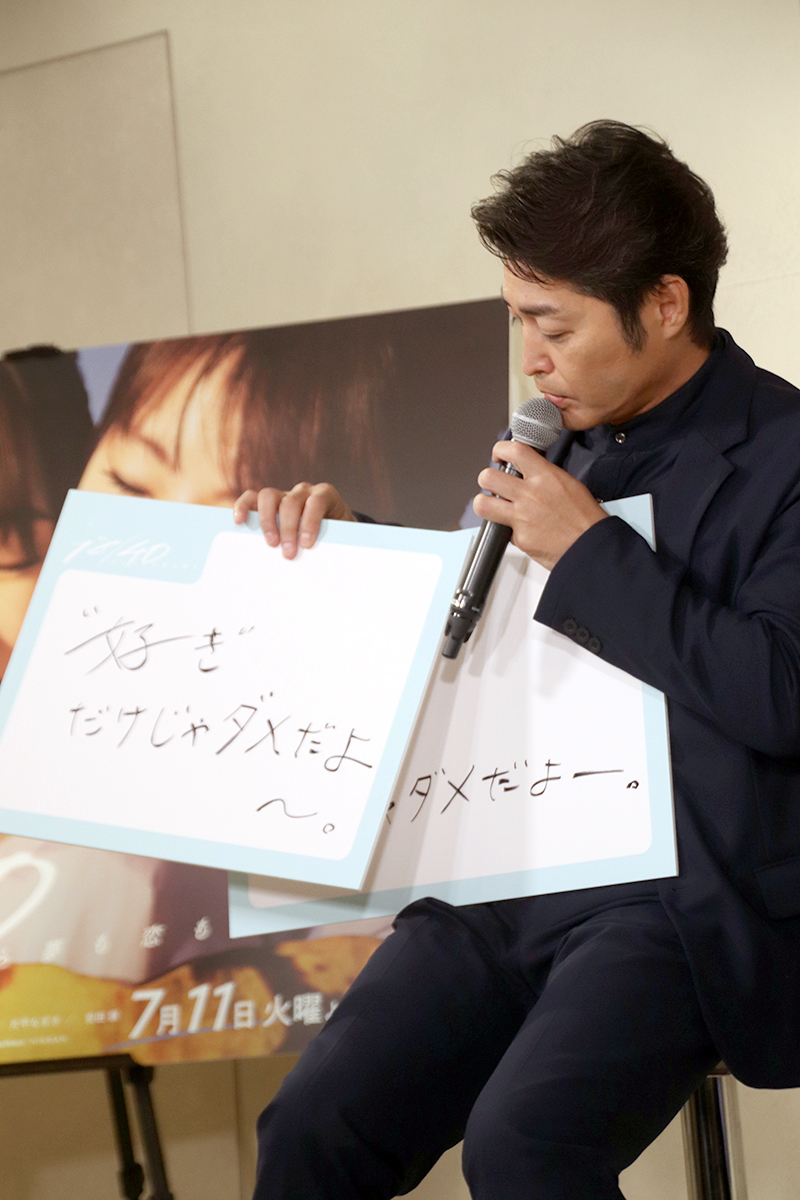 18/40
"好き"
だけじゃダメだよ
〜。
ダメだよー。
夢も恋も
7月11日火曜よ